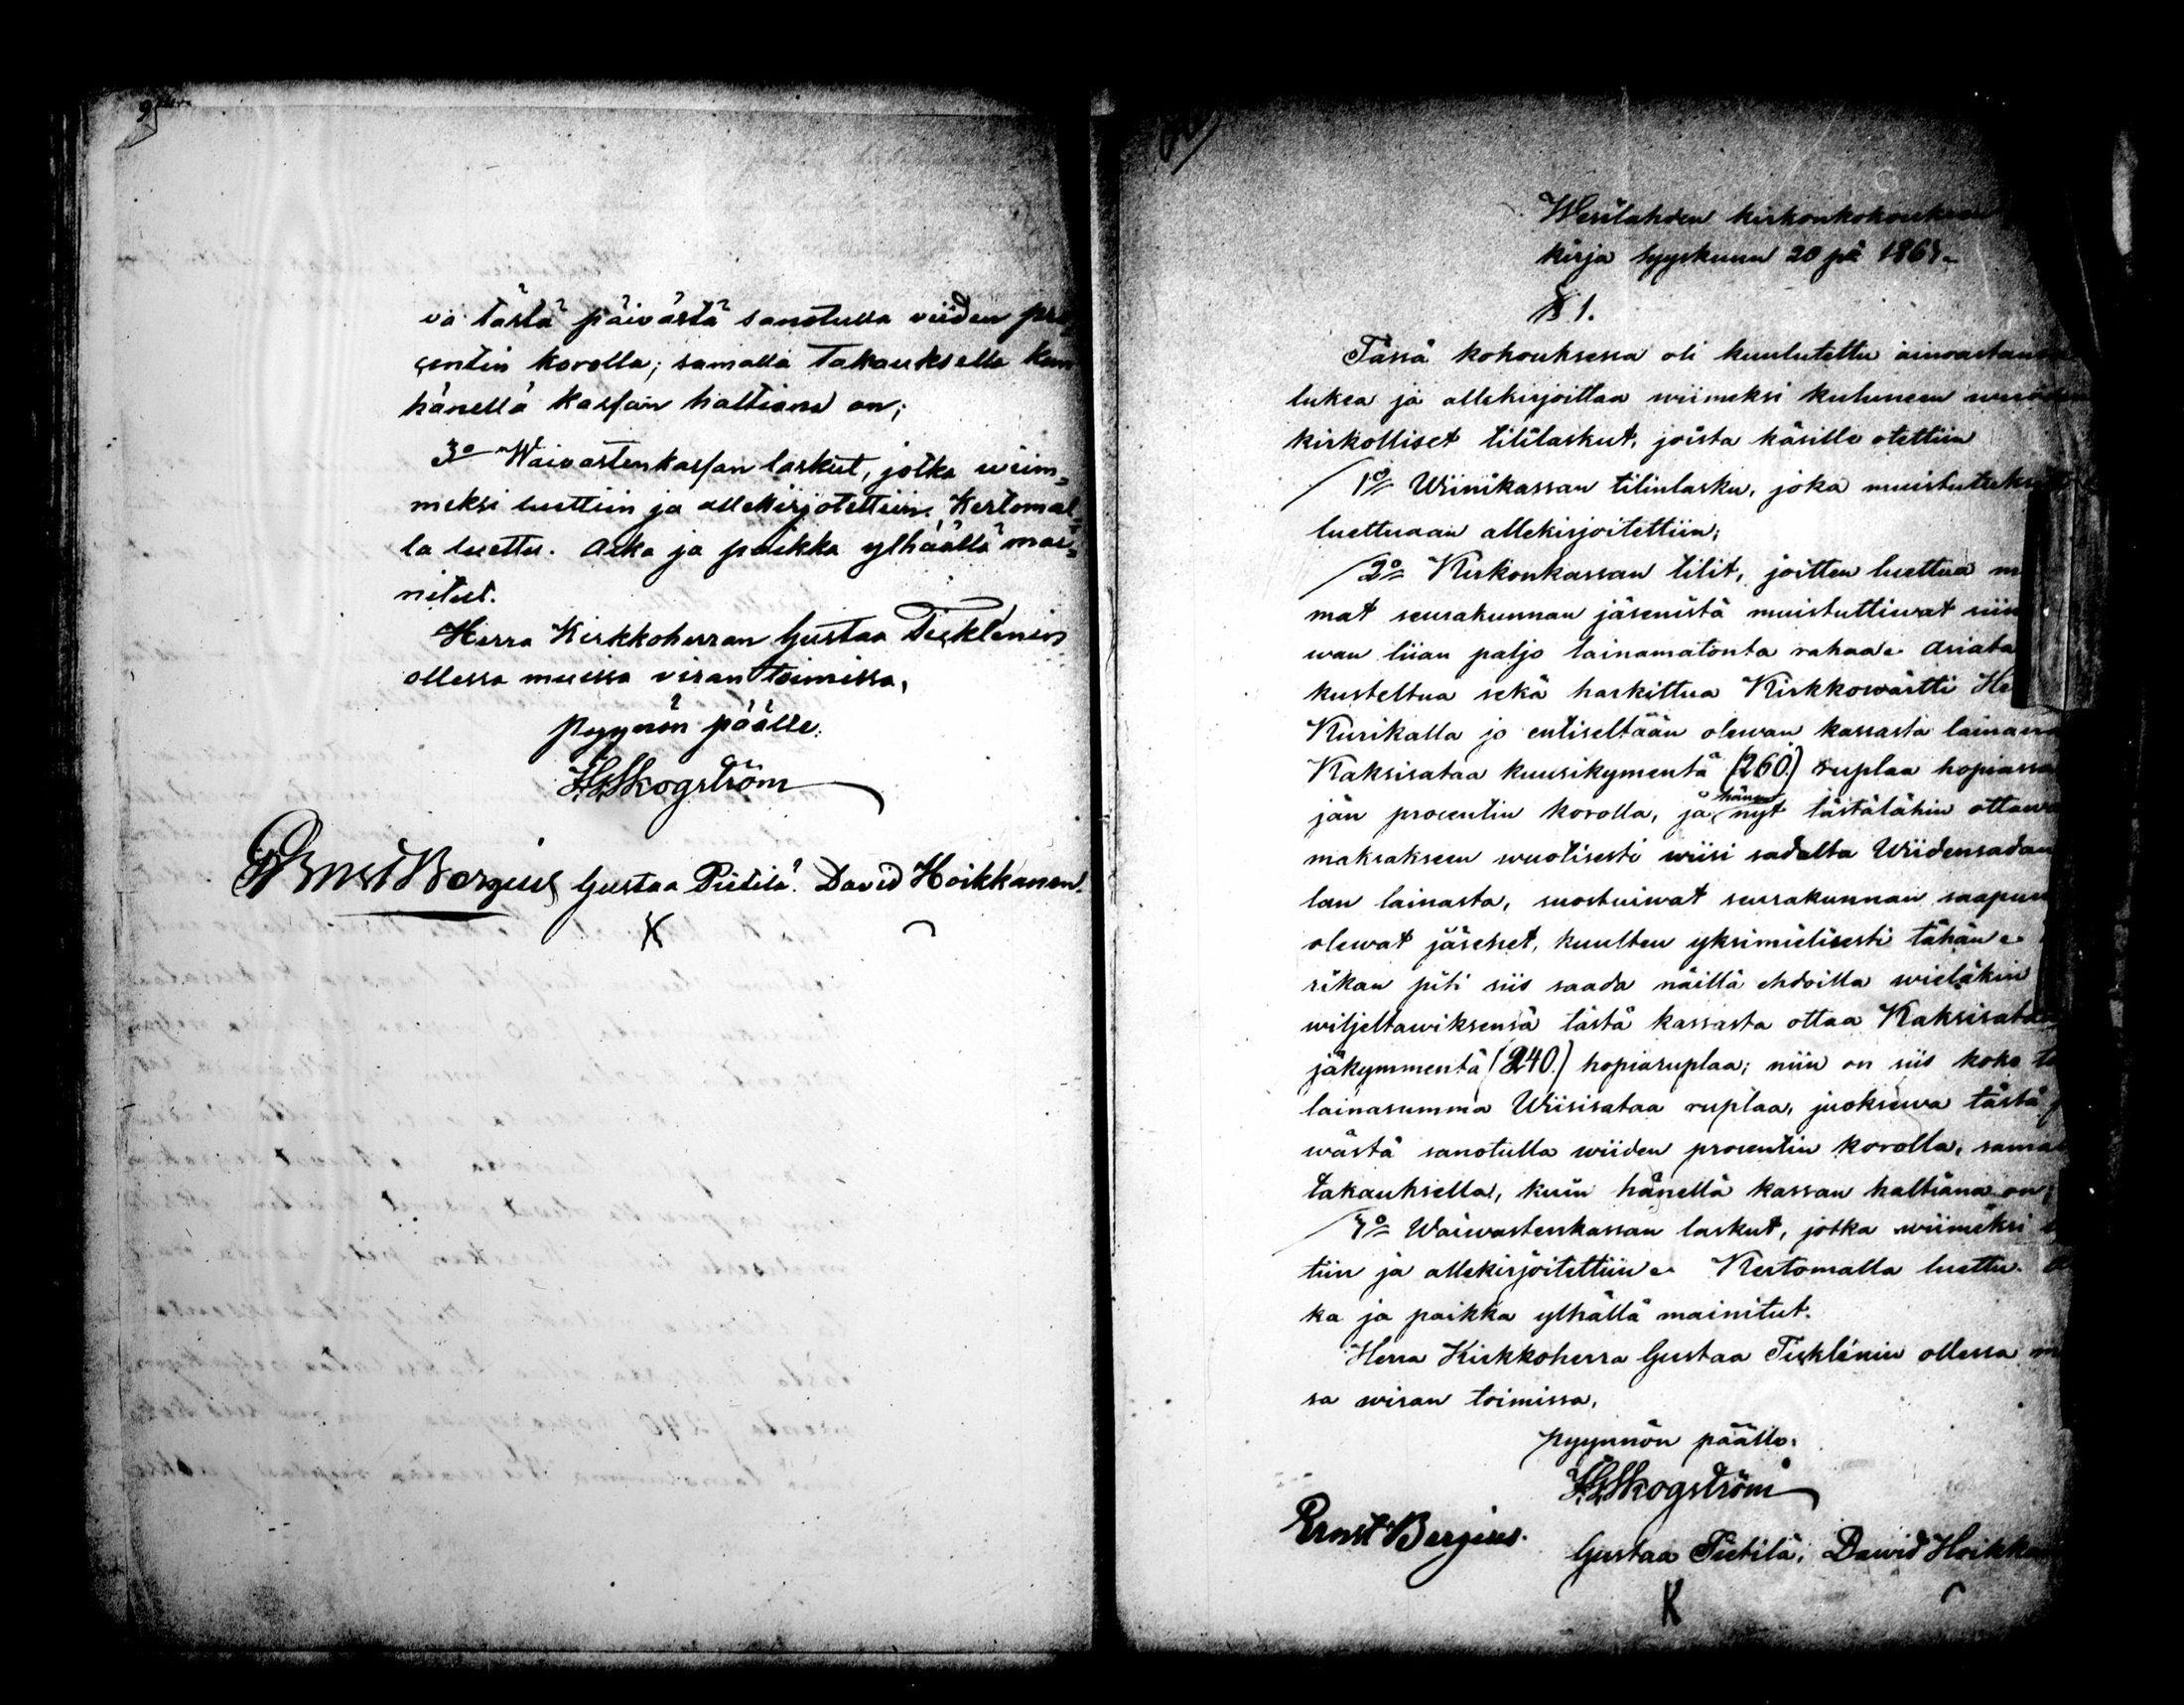 va tästä päivästä sanotulla viiden pro
çentin korolla; samalla Takauksella kun
hänellä kassan haltiana on;
3o Waivastenkassan laskut, jotka wiim„
meksi luettiin ja allekirjotettiin. Kertomal„
la luettu. Aika ja paikka ylhäällä mai„
nitut.
Herra Kirkkoherran Gustaa Ticklénin
ollessa muissa viran toimissa,
pyynnön päälle.
HGSkogström
Ernst Bergius Gustaa Pietilä. David Hoikkanen.
Wesilahden kirkonkokouksen
kirja Syyskuun 20 pä
§ 1.
Tässä kohouksessa oli kuulutettu ainoastansa
lukea ja allekirjoittaa wiimeksi kuluneen wuoden
kirkolliset tililaskut, joista käsille otettiin
1o Wiinikassan tilinlasku, joka muistutuksitta
luettuaan allekirjoitettiin;
2o Kirkonkassan tilit, joitten luettua m
mat seurakunnan jäsenistä muistuttiwat siin
wan liian paljo lainamatonta rahaa. Asiata
kusteltua sekä harkittua Kirkkowärtti He
Kurikalla jo entiseltään olewan kassasta lainassa
Kaksisataa kuusikymentä (260.) ruplaa hopiassa
jän procentin korolla, ja hänen nyt tästälähin ottawa
maksakseen wuotisesti wiisi sadalta Wiidensadan
lan lainasta, suostuiwat seurakunnan saapuu
olewat jäsenet, kuulten yksimielisesti tähän.
rikan piti siis saada näillä ehdoilla wieläkin
wiljeltawiksensä tästä kassasta ottaa Kaksisataa
jäkymmentä (240.) hopiaruplaa; niin on siis koko
lainasumma Wiisisataa ruplaa, juoksewa tästä p
wästä sanotulla wiiden procentin korolla, sama
takauksella, kuin hänellä kassan haltiana on;
3o Waiwastenkassan laskut, jotka wiimeksi
tiin ja allekirjoitettiin. Kertomalla luettu. A
ka ja paikka ylhällä mainitut.
Herra Kirkkoherra Gustaa Ticklénin ollessa m
sa wiran toimissa,
pyynnön päälle.
HGSkogström
Ernst Bergius.
Gustaa Pietilä, Dawid Hoikka